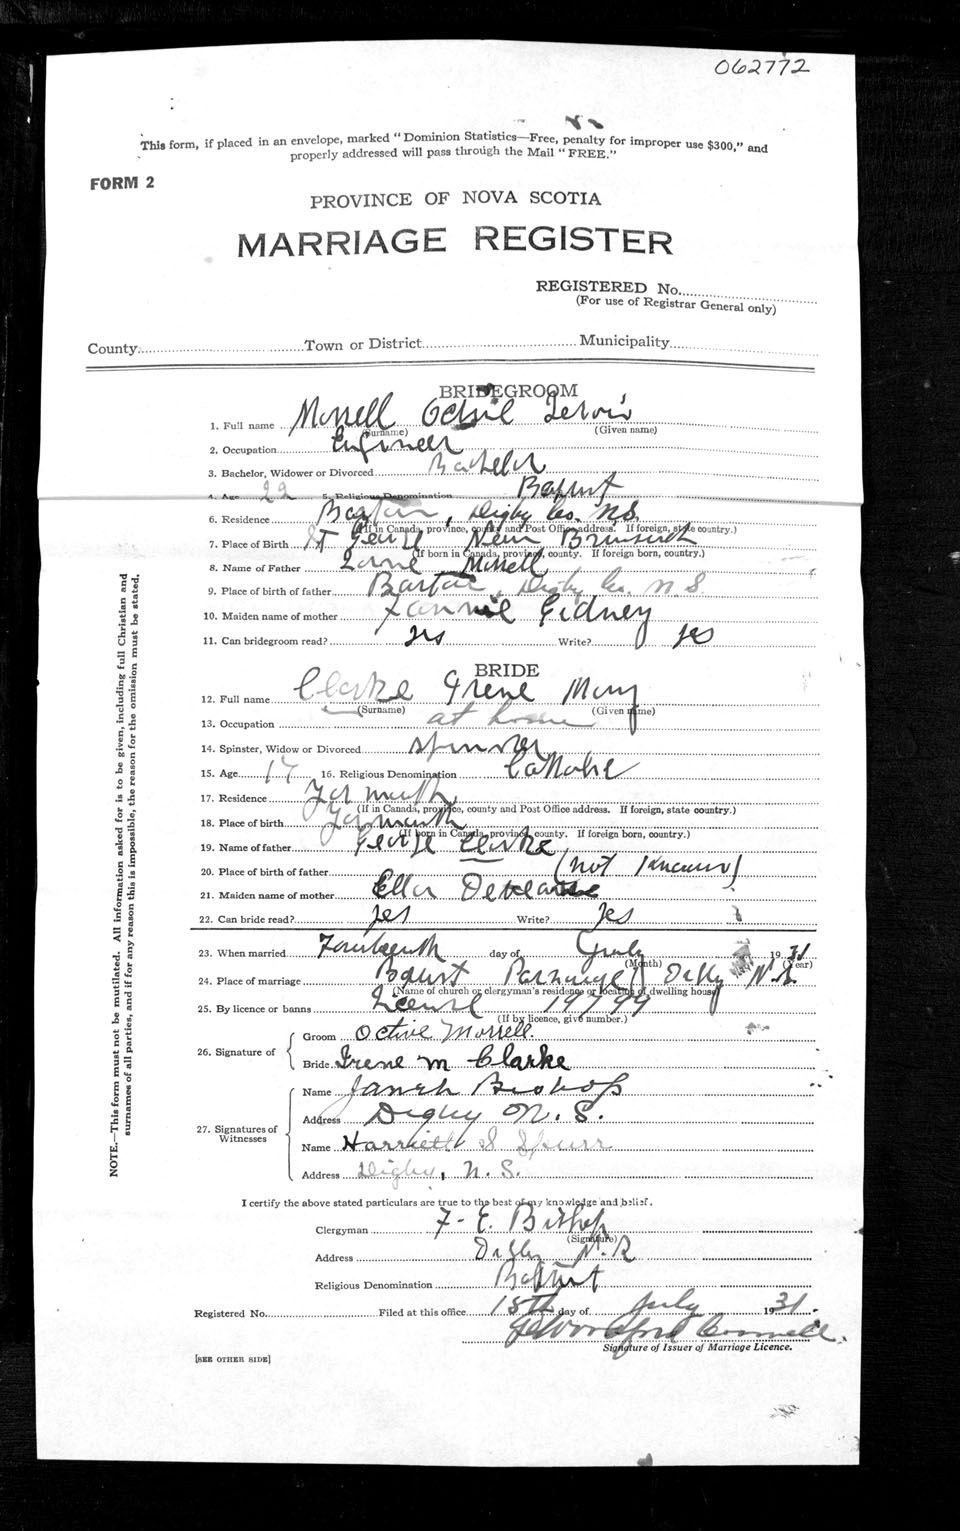 062772
This form, if placed in an envelope, marked "Dominion Statistics—Free, penalty for improper use $300," and
properly addressed will pass through the Mail "FREE."
FORM 2
PROVINCE OF NOVA SCOTIA
MARRIAGE REGISTER
REGISTERED No.
(For use of Registrar General only)
County Town or District Municipality
BRIDEGROOM
1. Full name Morrell
(Surname) (Given name)
2. Occupation Engineer
3. Bachelor, Widower or Divorced Bachelor
4. Age 22 5. Religious Denomination Baptist
6. Residence Barton, Digby Co. N.S.
(If in Canada, province, county and Post Office address. If foreign, state country.)
7. Place of Birth St New Brunswick
(If born in Canada, province, county. If foreign born, country.)
8. Name of Father Lorne Morrell
9. Place of birth of father Barton, Digby Co. N.S.
10. Maiden name of mother Fannie Gidney
11. Can bridegroom read? yes Write? yes
BRIDE
12. Full name Clarke Irene Mary
(Surname) (Given name)
13. Occupation at home
14. Spinster, Widow or Divorced Spinster
15. Age 17 16. Religious Denomination Catholic
17. Residence Yarmouth
(If in Canada, province, county and Post Office address. If foreign, state country.)
18. Place of birth Yarmouth
(If born in Canada, province, county. If foreign born, country.)
19. Name of father George Clarke
20. Place of birth of father (not known)
21. Maiden name of mother Ella
22. Can bride read? yes Write? yes
23. When married Fourteenth day of July 1931
(Month) (Year)
24. Place of marriage Baptist Parsonage, Digby N.S.
(Name of church or clergyman's residence or location of dwelling house)
25. By licence or banns License 19799
(If by licence, give number.)
26. Signature of
Groom Octive Morrell
Bride Irene M Clarke
27. Signatures of Witnesses
Name Bishop
Address Digby N.S.
Name Harriett S Spurr
Address Digby, N.S.
I certify the above stated particulars are true to the best of my knowledge and belief.
Clergyman F. E. Bishop
(Signature)
Address Digby N.S.
Religious Denomination Baptist
Registered No. Filed at this office 15th day of July 1931.
Signature of Issuer of Marriage Licence.
[SEE OTHER SIDE]
NOTE.—This form must not be mutilated. All information asked for is to be given, including full Christian and
surnames of all parties, and if for any reason this is impossible, the reason for the omission must be stated.